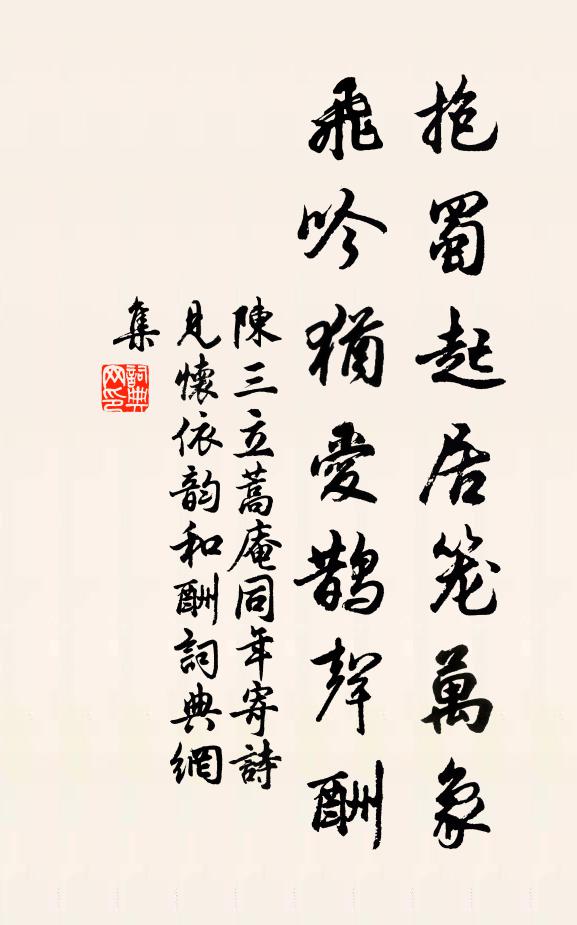 抱蜀起居笼萬象
飛吟猶愛鹊聲酬
陳三立蒿庵同年寄詩
見懷依韵和酬詞典網
集
詞典
网印